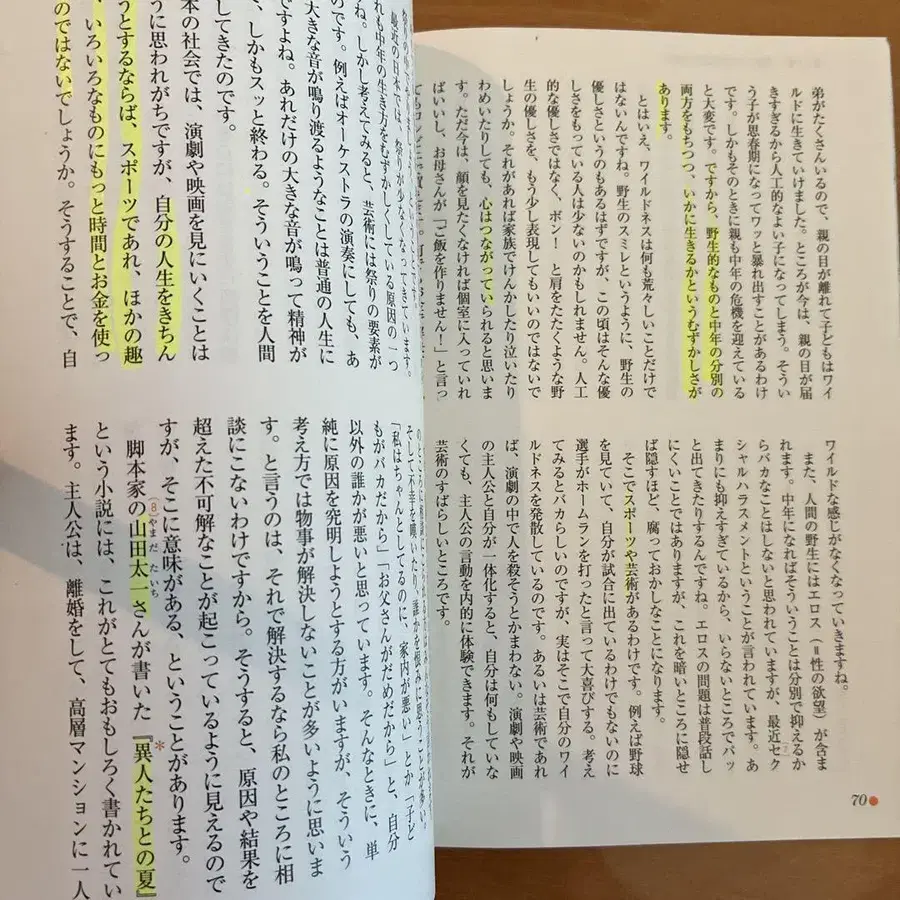 弟がたくさんいるので、親の目が離れて子どもはワイ
ルドに生きていけました。ところが今は、親の目が届
きすぎるから人工的なよい子になってしまう。そうい
う子が思春期になってワッと暴れ出すことがあるわけ
です。しかもそのときに親も中年の危機を迎えている
と大変です。ですから、野生的なものと中年の分別の
両方をもちつつ、いかに生きるかというむずかしさが
あります。
とはいえ、ワイルドネスは何も荒々しいことだけで
はないんですね。野生のスミレというように、野生の
優しさというのもあるはずですが、この頃はそんな優
しさをもっている人は少ないのかもしれません。人工
的な優しさではなく、ボン！　と肩をたたくような野
生の優しさを、もう少し表現してもいいのではないで
しょうか。それがあれば家族でけんかしたり泣いたり
わめいたりしても、心はつながっていられると思いま
す。ただ今は、顔を見たくなければ個室に入っていれ
ばいいし、お母さんが「ご飯を作りません！」と言っ
ワイルドな感じがなくなっていきますね。
また、人間の野生にはエロス（＝性の欲望）が含ま
れます。中年になればそういうことは分別で抑えるか
らバカなことはしないと思われていますが、最近セク
シャルハラスメントということが言われています。あ
まりにも抑えすぎているから、いらないところでパッ
と出てきたりするんですね。エロスの問題は普段話し
にくいことではありますが、これを暗いところに隠せ
ば隠すほど、腐っておかしなことになります。
そこでスポーツや芸術があるわけです。例えば野球
を見ていて、自分が試合に出ているわけでもないのに
選手がホームランを打ったと言って大喜びする。考え
てみるとバカらしいのですが、実はそこで自分のワイ
ルドネスを発散しているのです。あるいは芸術であれ
ば、演劇の中で人を殺そうとかまわない。演劇や映画
の主人公と自分が一体化すると、自分は何もしていな
くても、主人公の言動を内的に体験できます。それが
芸術のすばらしいところです。
70
最近の日本では、祭りが少なくなってきています。
れも中年の生き方をむずかしくしている原因の一つ
ね。しかし考えてみると、芸術には祭りの要素が
のです。例えばオーケストラの演奏にしても、あ
大きな音が鳴り渡るようなことは普通の人生に
ですよね。あれだけの大きな音が鳴って精神が
、しかもスッと終わる。そういうことを人間
してきたのです。
本の社会では、演劇や映画を見にいくことは
うに思われがちですが、自分の人生をきちん
うとするならば、スポーツであれ、ほかの趣
、いろいろなものにもっと時間とお金を使っ
のではないでしょうか。そうすることで、自
「私はちゃんとしてるのに、家内が悪い」とか「子ど
もがバカだから」「お父さんがだめだから」と、自分
以外の誰かが悪いと思っています。そんなときに、単
純に原因を究明しようとする方がいますが、そういう
考え方では物事が解決しないことが多いように思いま
す。と言うのは、それで解決するなら私のところに相
談にこないわけですから。そうすると、原因や結果を
超えた不可解なことが起こっているように見えるので
すが、そこに意味がある、ということがあります。
脚本家の山田太一さんが書いた『異人たちとの夏』
（8）やまだたいち
＊
という小説には、これがとてもおもしろく書かれてい
ます。主人公は、離婚をして、高層マンションに一人